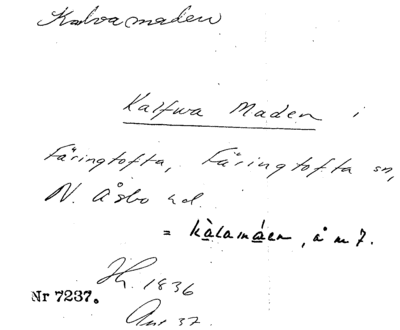 Kalvamaden
Kalfwa Maden i
Färingtofta, Färingtofta sn,
N. Åsbo hd.
= kàlamáen, å m 7.
Jh. 1836
Nr 7237.
37.